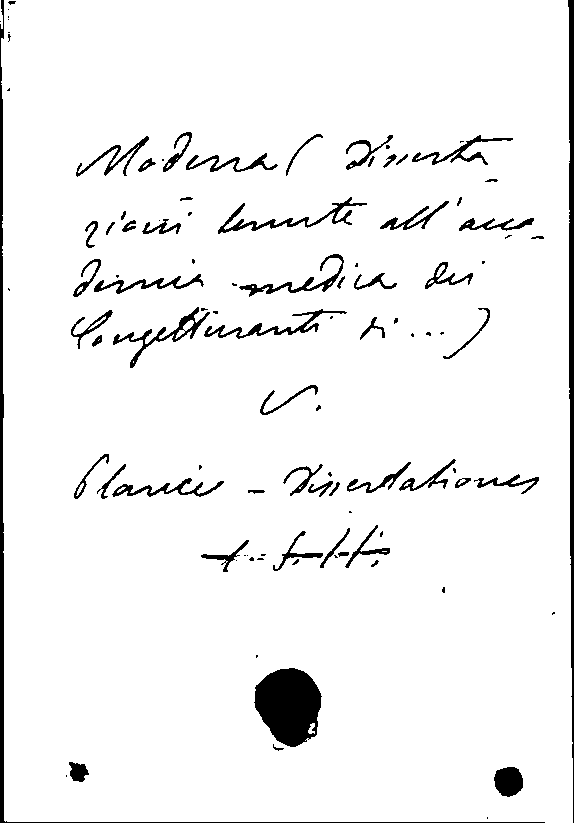 Modena ( Disserta-
zioni tenute all'acca-
demia medica dei
Congetturanti di ... )
V.
Plancii - Dissertationes